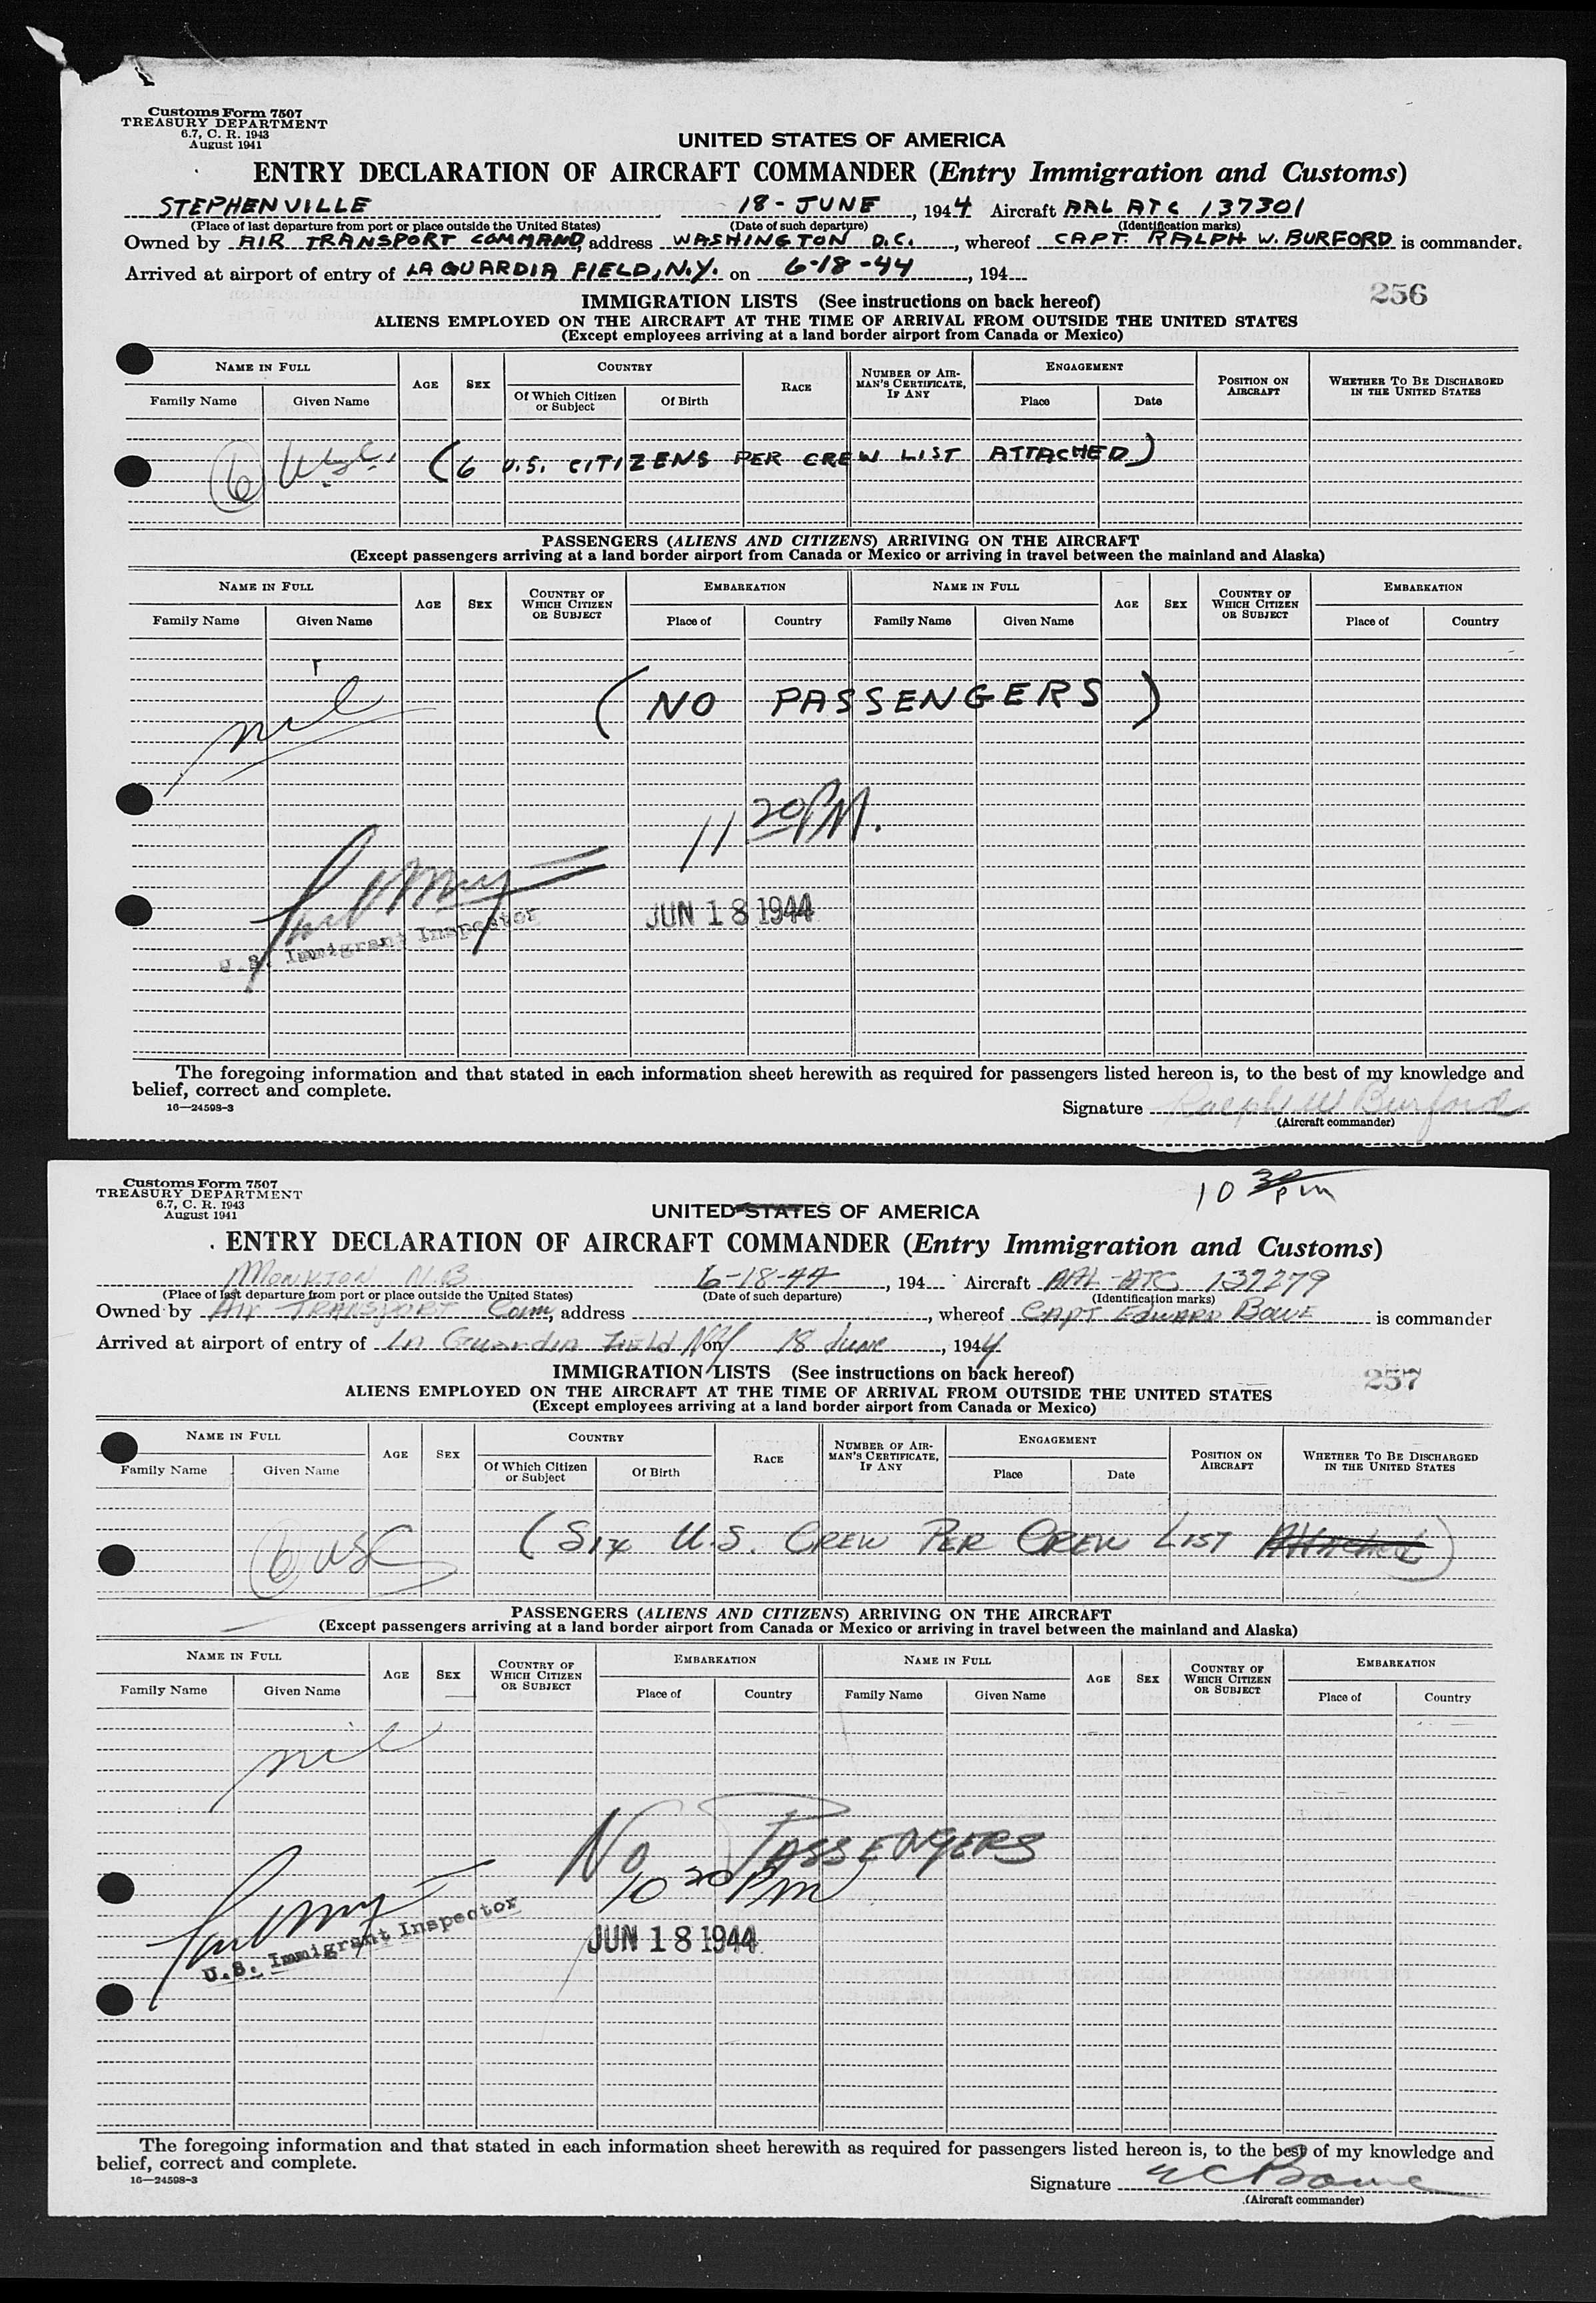 Customs Form 7507
TREASURY DEPARTMENT
6.7, C. R. 1943
August 1941
UNITED STATES OF AMERICA
ENTRY DECLARATION OF AIRCRAFT COMMANDER (Entry Immigration and Customs)
STEPHENVILLE 18-JUNE, 1944 Aircraft AAL ATC 137301
(Place of last departure from port or place outside the United States) (Date of such departure) (Identification marks)
Owned by AIR TRANSPORT COMMAND, address WASHINGTON D.C., whereof CAPT. RALPH W. BURFORD is commander.
Arrived at airport of entry of LA GUARDIA FIELD, N.Y. on 6-18-44, 194
IMMIGRATION LISTS (See instructions on back hereof) 256
ALIENS EMPLOYED ON THE AIRCRAFT AT THE TIME OF ARRIVAL FROM OUTSIDE THE UNITED STATES
(Except employees arriving at a land border airport from Canada or Mexico)
NAME IN FULL AGE SEX COUNTRY RACE NUMBER OF AIRMAN'S CERTIFICATE, IF ANY ENGAGEMENT POSITION ON AIRCRAFT WHETHER TO BE DISCHARGED IN THE UNITED STATES
Family Name Given Name Of Which Citizen or Subject Of Birth Place Date
6 U.S.C. (6 U.S. CITIZENS PER CREW LIST ATTACHED)
PASSENGERS (ALIENS AND CITIZENS) ARRIVING ON THE AIRCRAFT
(Except passengers arriving at a land border airport from Canada or Mexico or arriving in travel between the mainland and Alaska)
NAME IN FULL AGE SEX COUNTRY OF WHICH CITIZEN OR SUBJECT EMBARKATION NAME IN FULL AGE SEX COUNTRY OF WHICH CITIZEN OR SUBJECT EMBARKATION
Family Name Given Name Place of Country Family Name Given Name Place of Country
nil (NO PASSENGERS)
11 20 PM.
JUN 18 1944
U.S. Immigrant Inspector
The foregoing information and that stated in each information sheet herewith as required for passengers listed hereon is, to the best of my knowledge and
belief, correct and complete.
16—24598-3
Signature Ralph W Burford
(Aircraft commander)
Customs Form 7507
TREASURY DEPARTMENT
6.7, C. R. 1943
August 1941
10 30 pm
UNITED STATES OF AMERICA
ENTRY DECLARATION OF AIRCRAFT COMMANDER (Entry Immigration and Customs)
MONKTON N.B 6-18-44, 194 Aircraft AAL-ATC 137279
(Place of last departure from port or place outside the United States) (Date of such departure) (Identification marks)
Owned by AIR TRANSPORT Comm, address , whereof CAPT EDWARD BOWE is commander
Arrived at airport of entry of La Guardia Field NY on 18 June, 1944
IMMIGRATION LISTS (See instructions on back hereof) 257
ALIENS EMPLOYED ON THE AIRCRAFT AT THE TIME OF ARRIVAL FROM OUTSIDE THE UNITED STATES
(Except employees arriving at a land border airport from Canada or Mexico)
NAME IN FULL AGE SEX COUNTRY RACE NUMBER OF AIRMAN'S CERTIFICATE, IF ANY ENGAGEMENT POSITION ON AIRCRAFT WHETHER TO BE DISCHARGED IN THE UNITED STATES
Family Name Given Name Of Which Citizen or Subject Of Birth Place Date
6 USC (SIX U.S. CREW PER CREW LIST Attached)
PASSENGERS (ALIENS AND CITIZENS) ARRIVING ON THE AIRCRAFT
(Except passengers arriving at a land border airport from Canada or Mexico or arriving in travel between the mainland and Alaska)
NAME IN FULL AGE SEX COUNTRY OF WHICH CITIZEN OR SUBJECT EMBARKATION NAME IN FULL AGE SEX COUNTRY OF WHICH CITIZEN OR SUBJECT EMBARKATION
Family Name Given Name Place of Country Family Name Given Name Place of Country
nil
No PASSENGERS
10 20 Pm
JUN 18 1944
U.S. Immigrant Inspector
The foregoing information and that stated in each information sheet herewith as required for passengers listed hereon is, to the best of my knowledge and
belief, correct and complete.
16—24598-3
Signature E C Bowe
(Aircraft commander)